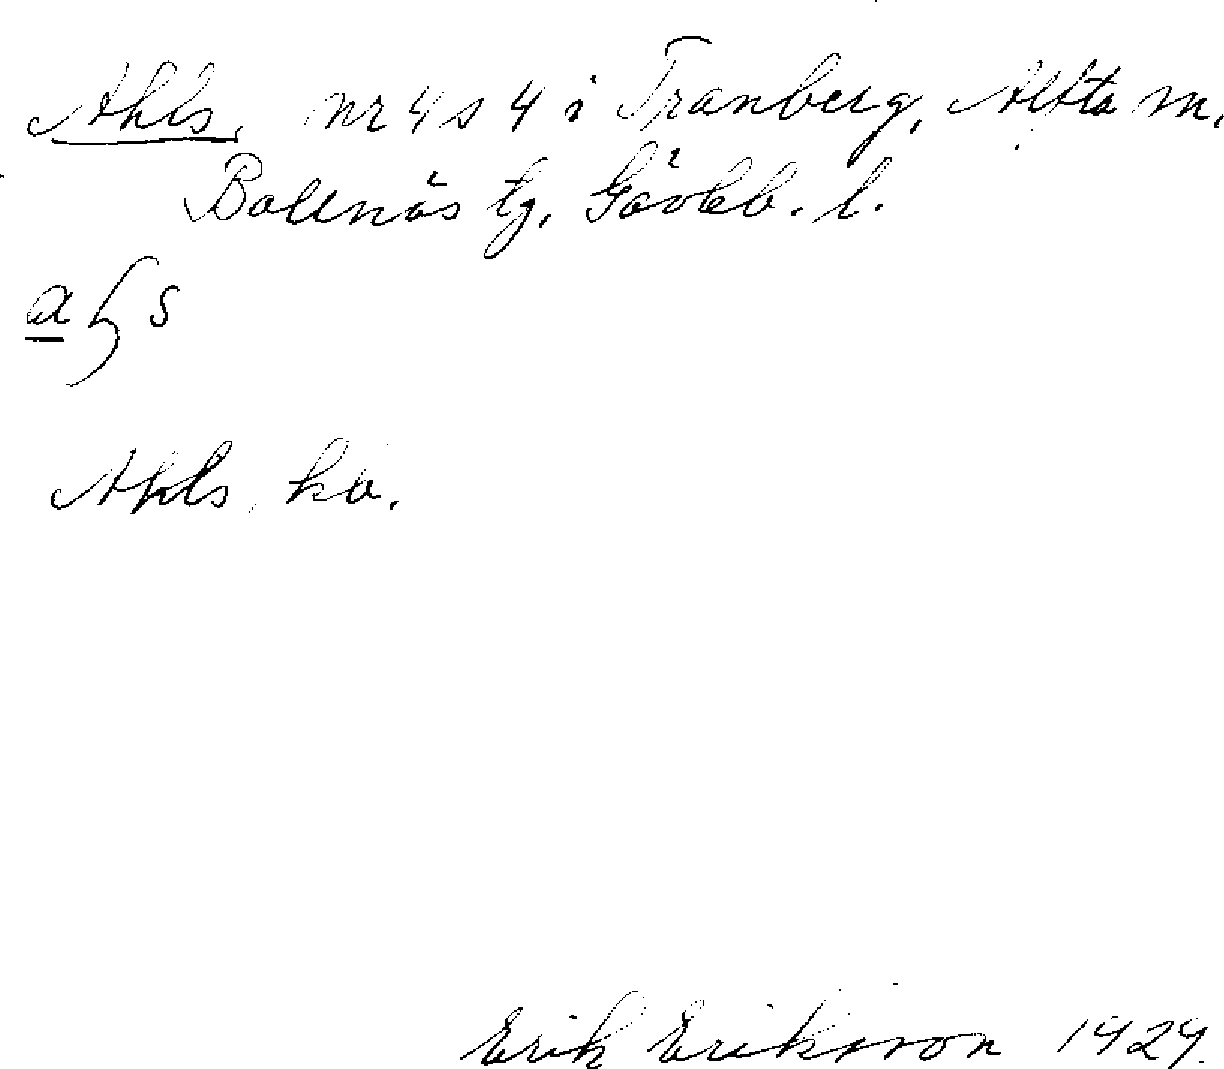 Ahls, nr 4 s 4 i Tranberg, Alfta m,
Bollnäs tg, Gävleb. l.
a s
Ahls, ko.
Erik Eriksson 1929.